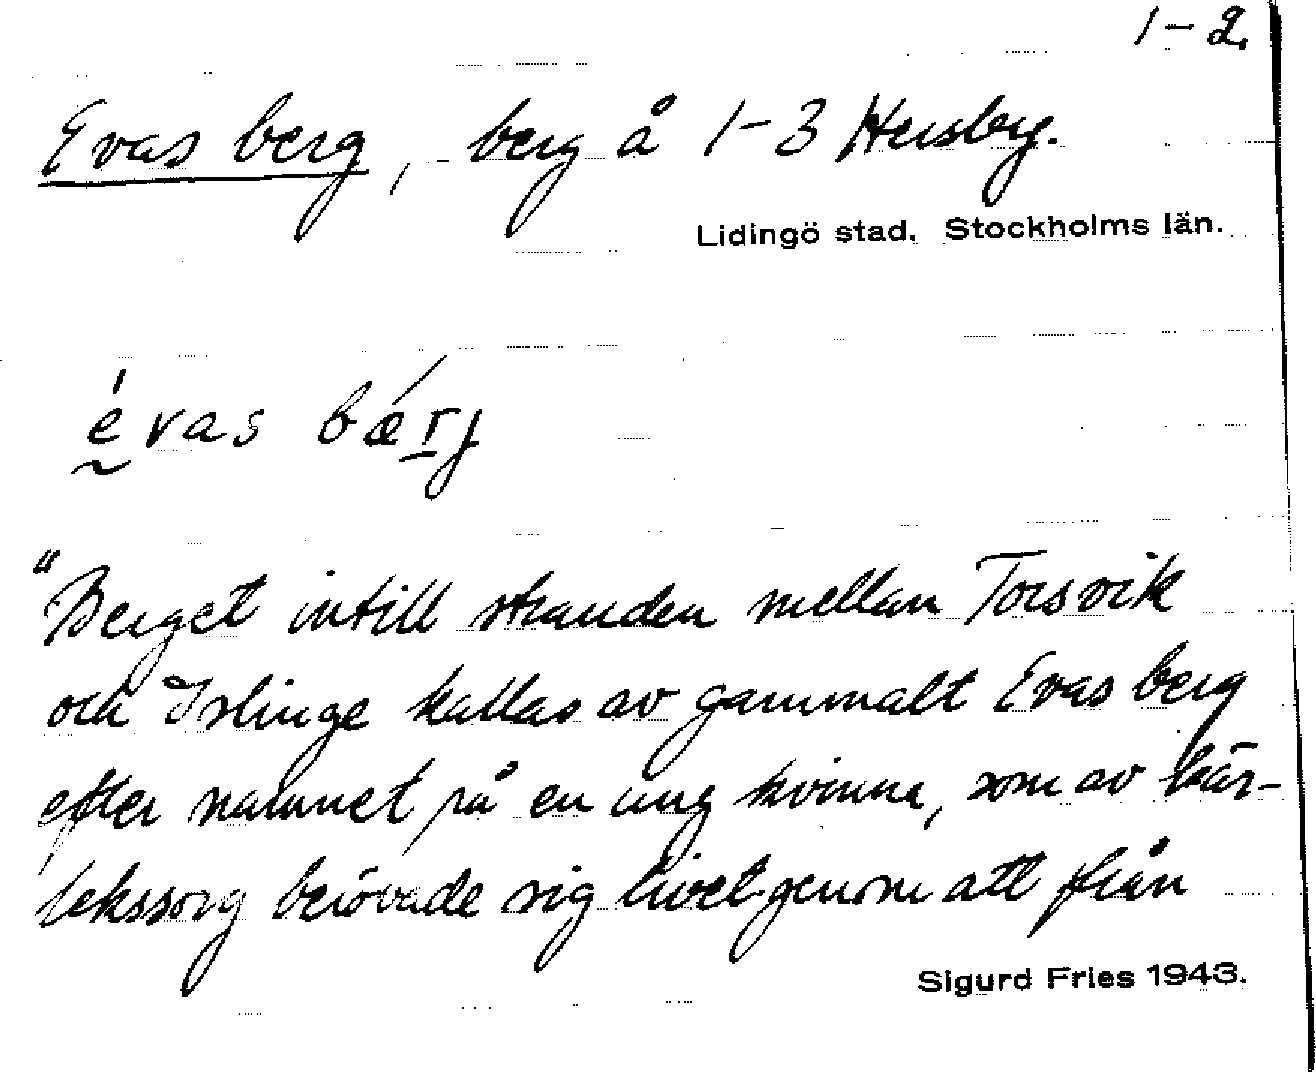 1-2.
Evas berg, berg å 1-3 Hersby.
Lidingö stad. Stockholms län.
évas bǽrj
"Berget intill stranden mellan Torsvik
och Islinge kallas av gammalt Evas berg
efter namnet på en ung kvinna, som av kär-
lekssorg berövade sig livet genom att från
Sigurd Fries 1943.